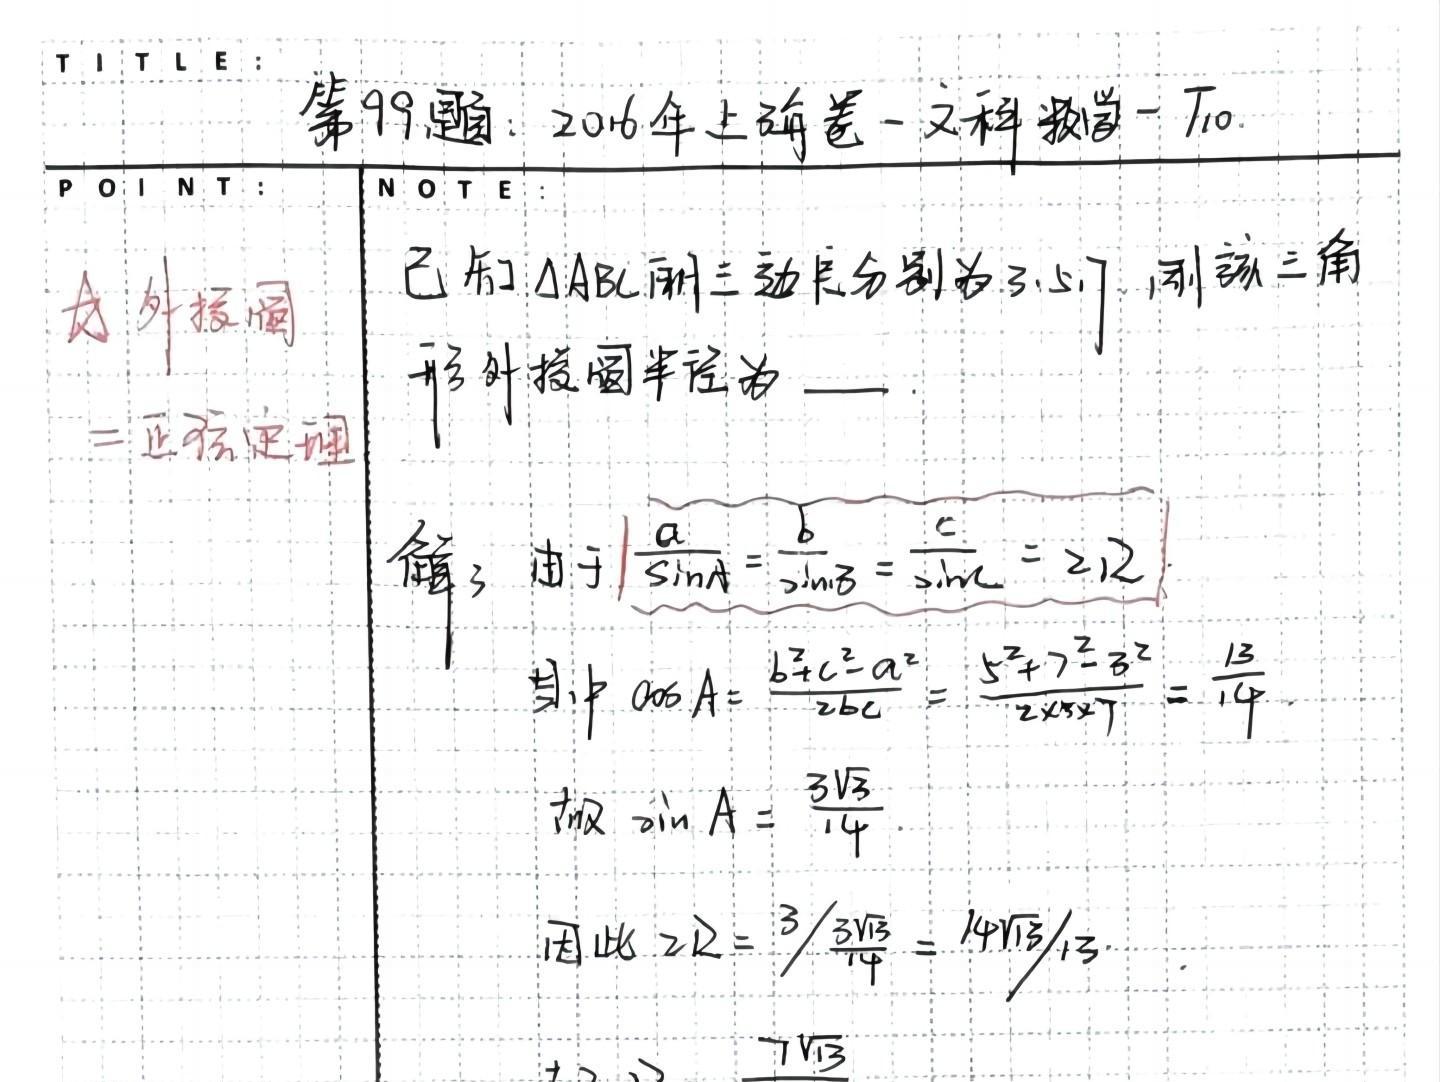 TITLE:
第99题：2016年上海卷-文科数学-T10.
POINT:
NOTE:
☆外接圆
=正弦定理
已知△ABC的三边长分别为3.5.7，则該三角
形外接圆半径为____.
解：由于 a/sinA = b/sinB = c/sinC = 2R
其中 cosA = (b²+c²-a²)/2bc = (5²+7²-3²)/(2×5×7) = 13/14.
故 sinA = 3√3/14.
因此 2R = 3/(3√13/14) = 14√13/13.
7√13